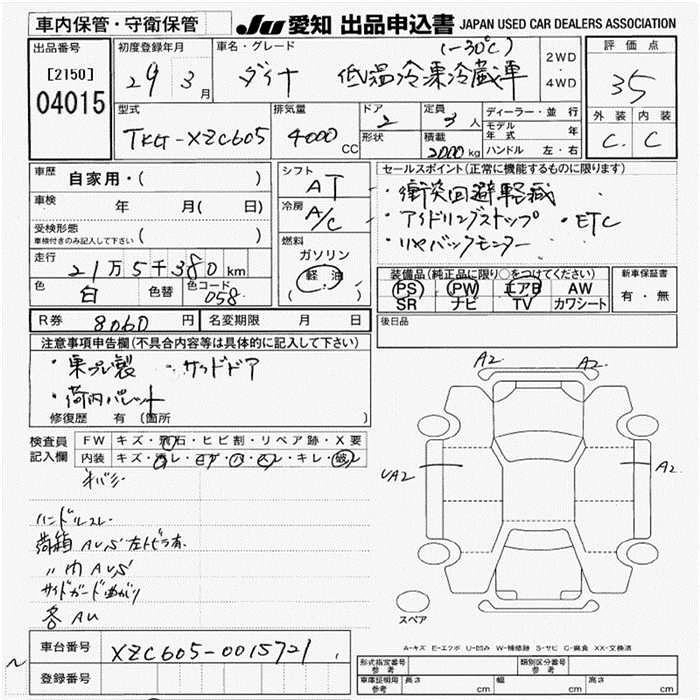 車内保管・守衛保管
JU 愛知 出品申込書 JAPAN USED CAR DEALERS ASSOCIATION
出品番号
[2150]
04015
初度登録年月
29 3月
車名・グレード
ダイナ 低温冷凍冷蔵車 (-30℃)
2WD
4WD
評価点
35
外装 内装
C. C
型式
TKG-XZC605
排気量
4000 CC
ドア 2
形状
定員 3 人
積載 2000 kg
ディーラー・並行
モデル年式 年
ハンドル 左・右
車歴 自家用・( )
車検 年 月( 日)
受検形態
車検付きのみ記入して下さい ( )
走行 21万5千380km
色 白 色替 色コード 058
シフト AT
冷房 A/C
燃料
ガソリン
軽油
( )
セールスポイント(正常に機能するものに限ります)
・衝突回避軽減
・アイドリングストップ ・ETC
・リヤバックモニター
装備品(純正品に限り○をつけてください)
PS PW エアB AW
SR ナビ TV カワシート
新車保証書
有・無
R券 8060 円 名変期限 月 日
後日品
注意事項申告欄(不具合内容等は具体的に記入して下さい)
・東プレ製 ・サイドドア
・荷内パレット
修復歴 有 (箇所 )
検査員記入欄
FW キズ・飛石・ヒビ割・リペア跡・X要
内装 キズ・キレ・破レ
ハンドルスレ
荷箱 AUS
〃内 AUS
サイドガード曲がり
各AU
A2 A2
UA2 A2
スペア
A-キズ E-エクボ U-凹み W-補修跡 S-サビ C-腐食 XX-交換済
車台番号 XZC605-0015721
登録番号
形式指定番号 参考
類別区分番号 参考
車庫証明用 参考 長さ cm 幅 cm 高さ cm